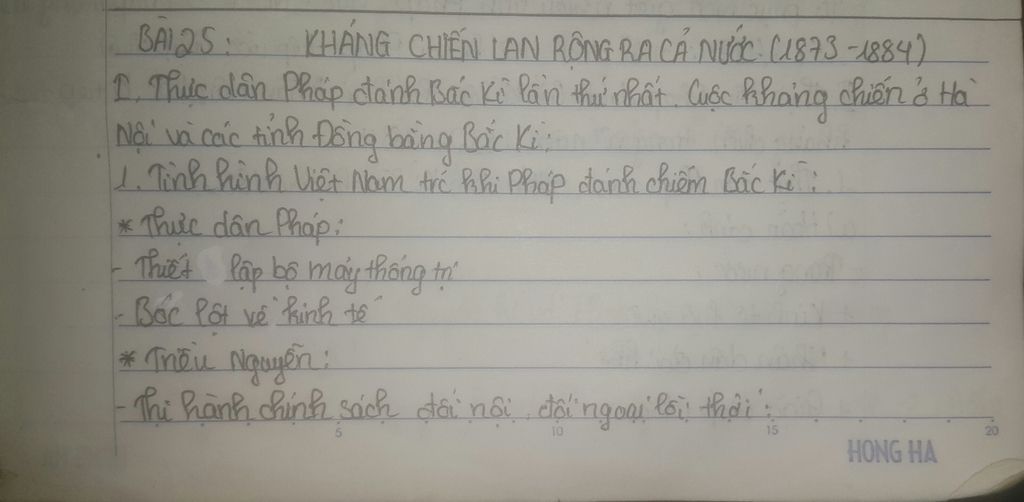 BÀI 25: KHÁNG CHIẾN LAN RỘNG RA CẢ NƯỚC (1873-1884)
I. Thực dân Pháp đánh Bắc Kì lần thứ nhất. Cuộc kháng chiến ở Hà
Nội và các tỉnh Đồng bằng Bắc Kì:
1. Tình hình Việt Nam trc khi Pháp đánh chiếm Bắc Kì:
* Thực dân Pháp:
- Thiết lập bộ máy thống trị
- Bóc lột về kinh tế
* Triều Nguyễn:
- Thi hành chính sách đối nội, đối ngoại lỗi thời:
5 10 15 20
HONG HA